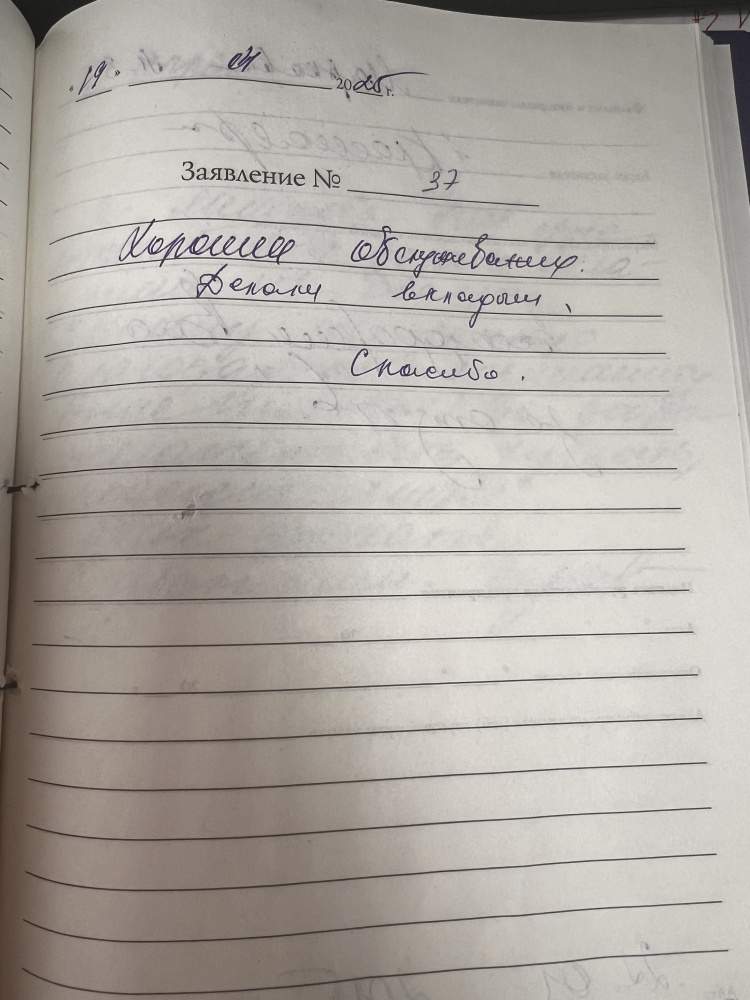 "19" 04 2025 г.
Заявление № 37
Хорошие обслуживание.
Делали вкладыш,
Спасибо.